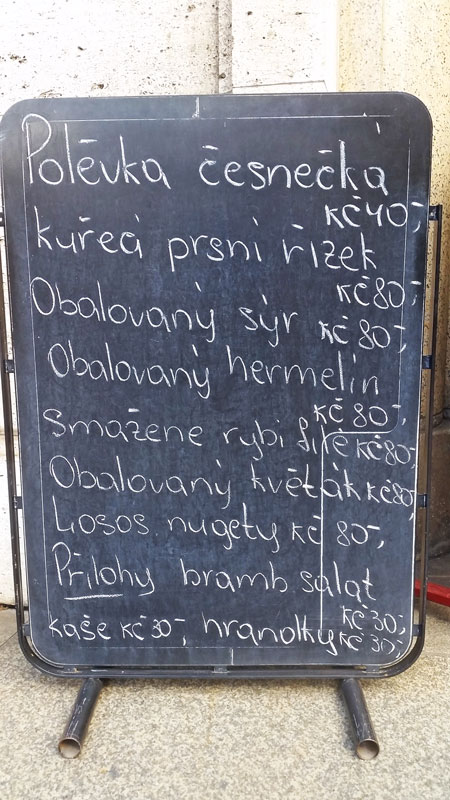 Polévka česnečká
Kč 40,-
kuřecí prsní řízek
Kč 80,-
Obalovaný sýr Kč 80,-
Obalovaný hermelín
Kč 80,-
smažene rybí filé Kč 80,-
Obalovaný květák Kč 80,-
Losos nugety Kč 80,-
Přílohy bramb salat
Kč 30,-
kaše Kč 30,- hranolky Kč 30,-